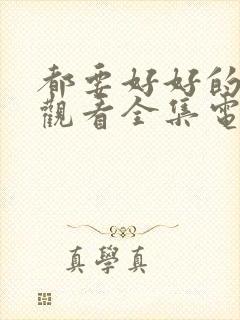 都要好好的
觀看全集電
真學真